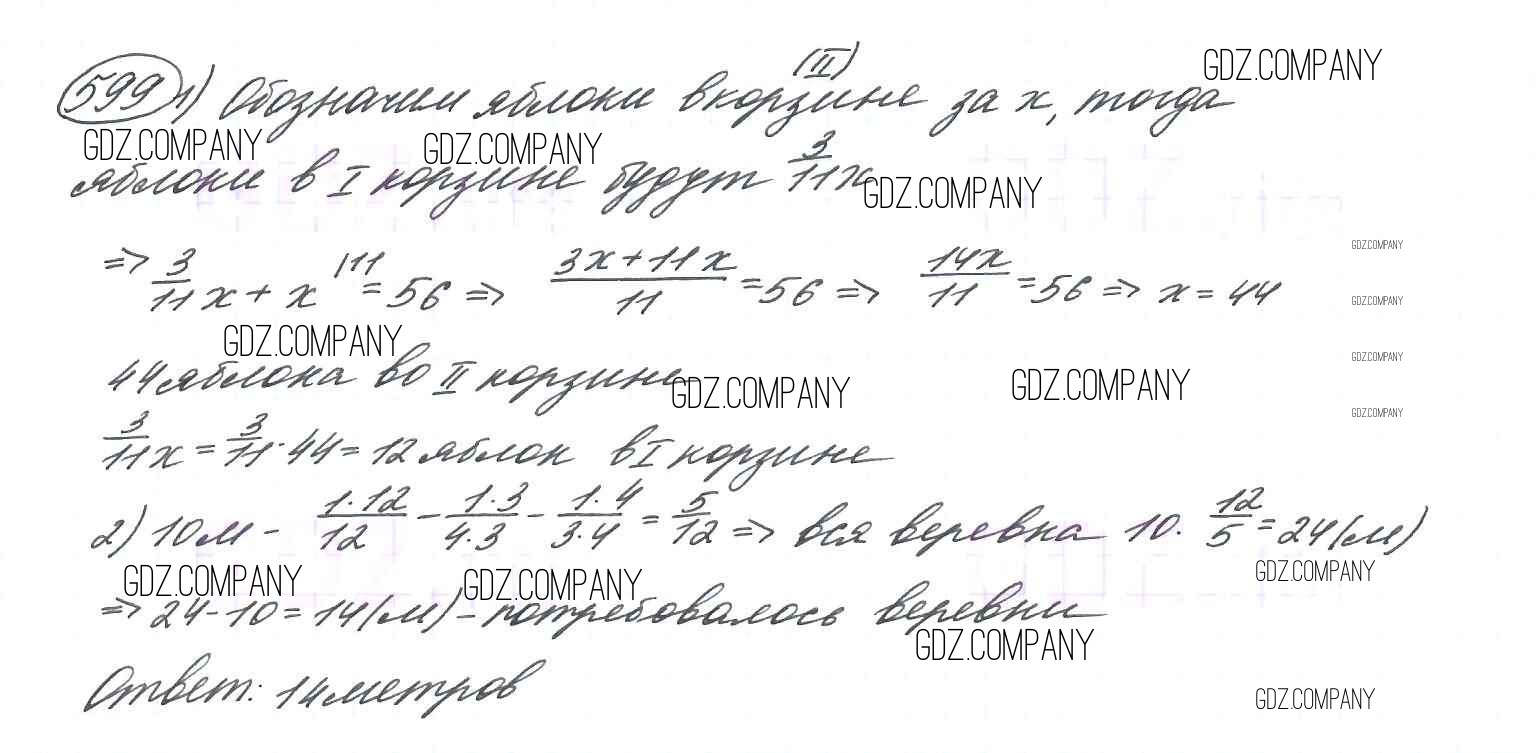 (II)
599 1) Обозначим яблоки в корзине за x, тогда
GDZ.COMPANY
GDZ.COMPANY
GDZ.COMPANY
яблоки в I корзине будут 3/11 x
GDZ.COMPANY
GDZ.COMPANY
=> 3/11 x + x |11 = 56 => (3x+11x)/11 = 56 => 14x/11 = 56 => x = 44
GDZ.COMPANY
GDZ.COMPANY
GDZ.COMPANY
44 яблока во II корзине
GDZ.COMPANY
GDZ.COMPANY
GDZ.COMPANY
3/11 x = 3/11 · 44 = 12 яблок в I корзине
2) 10м - (1·12)/12 - (1·3)/(4·3) - (1·4)/(3·4) = 5/12 => вся веревка 10 · 12/5 = 24 (м)
GDZ.COMPANY
GDZ.COMPANY
GDZ.COMPANY
=> 24-10 = 14 (м) - потребовалось веревки
GDZ.COMPANY
Ответ: 14 метров
GDZ.COMPANY